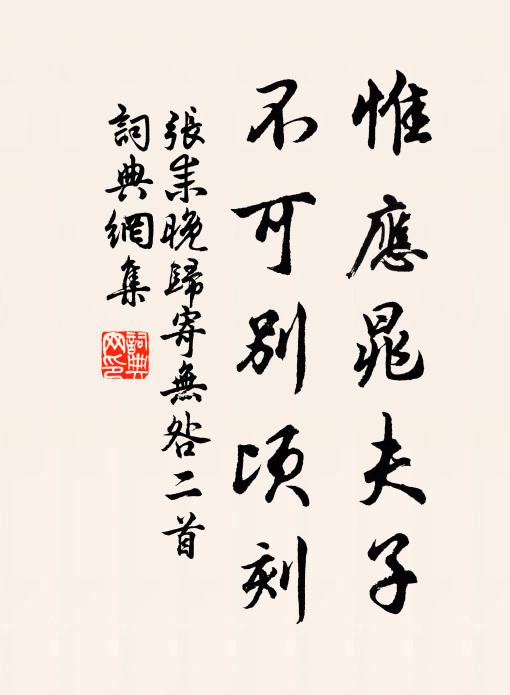 惟應晁夫子
不可別頃刻
張耒晚歸寄無咎二首
詞典網集
詞典網印